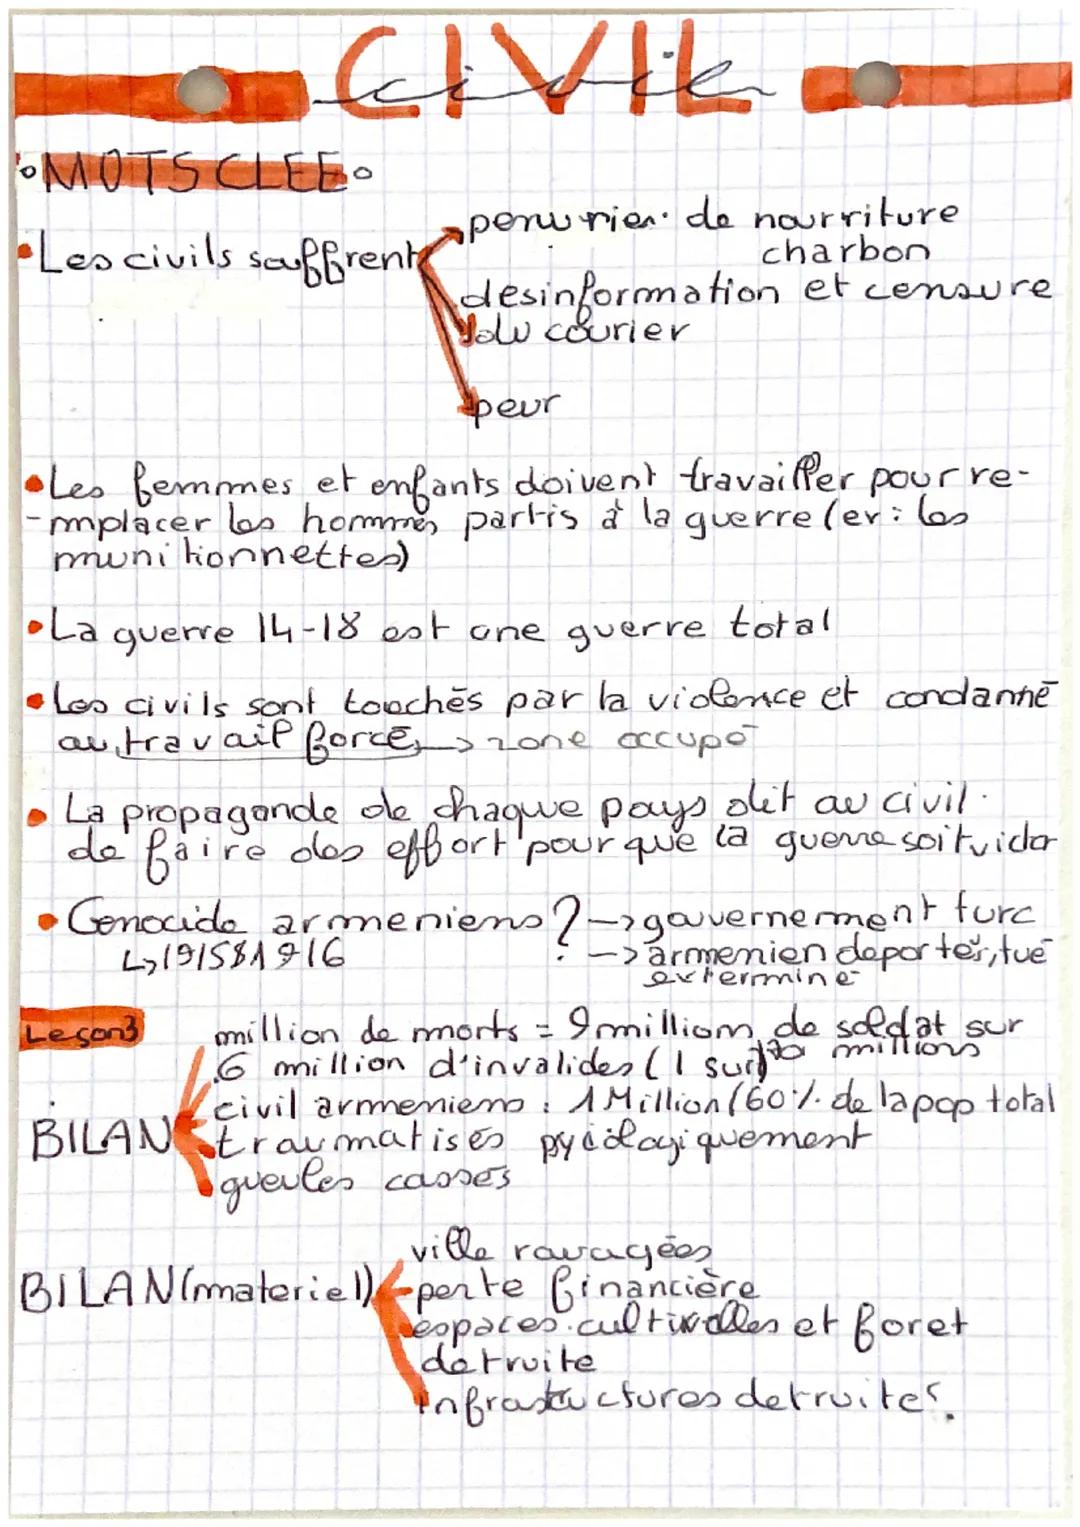 CIVIL
civil
°MOTS CLEE°
•Les civils souffrent
penurier de nourriture
charbon
desinformation et censure
du courier
peur
•Les femmes et enfants doivent travailler pour re-
-mplacer les hommes partis à la guerre (ex: les
munitionnettes)
•La guerre 14-18 est une guerre total
•Les civils sont touchés par la violence et condanné
au travail forcé, → zone occupé
•La propagande de chaque pays dit au civil
de faire des effort pour que la guerre soit
•Genocide armeniens ? → gouvernement turc
↳ 1915 à 1916
→ armenien deporter, tué
exterminé
Leson3
million de morts = 9 million de soldat sur
millions
6 million d'invalides (1 sur
civil armeniens : 1 Million (60% de la pop total
BILAN
traumatisés
gueules cassés
ville ravagées
BILAN(materiel)
perte financière
espaces cultivables et foret
detruite
infrastuctures detruites.